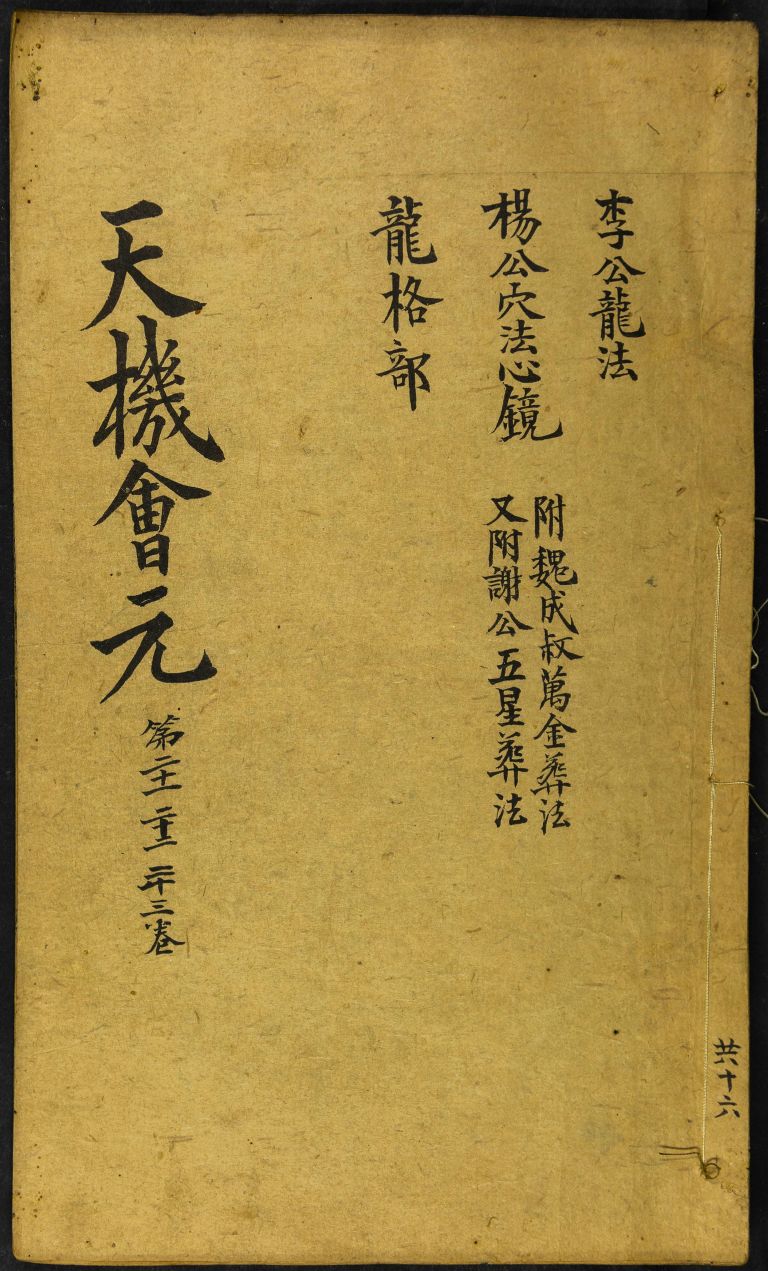 李公龍法
楊公穴法心鏡
附魏成叔萬金葬法
又附謝公五星葬法
龍格部
天機會元
第二十一 二十二 二十三卷
共十六